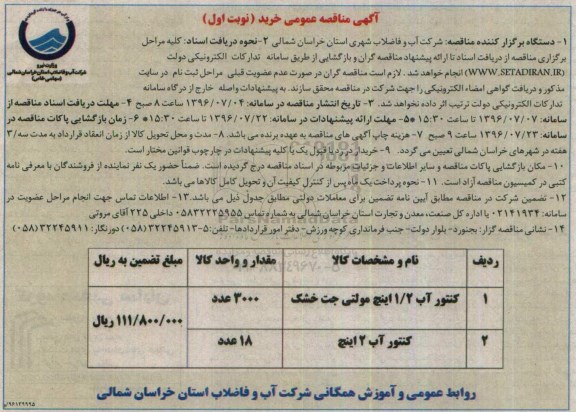 آگهی مناقصه عمومی خرید (نوبت اول)
وزارت نیرو
شرکت آب و فاضلاب استان خراسان شمالی
(سهامی خاص)
۱- دستگاه برگزار کننده مناقصه: شرکت آب و فاضلاب شهری استان خراسان شمالی ۲-نحوه دریافت اسناد: کلیه مراحل
برگزاری مناقصه از دریافت اسناد تا ارائه پیشنهاد مناقصه گران و بازگشایی از طریق سامانه تدارکات الکترونیکی دولت
(WWW.SETADIRAN.IR) انجام خواهد شد. لازم است مناقصه گران در صورت عدم عضویت قبلی مراحل ثبت نام در سایت
مذکور و دریافت گواهی امضاء الکترونیکی را جهت شرکت در مناقصه محقق سازند. به پیشنهادات واصله خارج از درگاه سامانه
تدارکات الکترونیکی دولت ترتیب اثر داده نخواهد شد. ۳- تاریخ انتشار مناقصه در سامانه: ۱۳۹۶/۰۷/۰۴ ساعت ۸ صبح ۴- مهلت دریافت اسناد از
سامانه: ۱۳۹۶/۰۷/۰۷ تا ساعت ۱۵:۳۰ ۵- مهلت ارائه پیشنهادات در سامانه: ۱۳۹۶/۰۷/۲۲ تا ساعت ۱۵:۳۰ ۶- زمان بازگشایی پاکات مناقصه در
سامانه: ۱۳۹۶/۰۷/۲۳ ساعت ۹ صبح ۷- هزینه چاپ آگهی های مناقصه به عهده برنده می باشد. ۸- مدت و محل تحویل کالا از زمان انعقاد قرارداد به مدت سه/۳
هفته در شهرهای خراسان شمالی تعیین می گردد. ۹- خریدار در رد یا قبول یک یا کلیه پیشنهادات در چارچوب قوانین مختار است.
۱۰- مکان بازگشایی پاکات مناقصه و سایر اطلاعات و جزئیات مربوطه در اسناد مناقصه درج گردیده است. ضمناً حضور یک نفر نماینده از فروشندگان با معرفی نامه
کتبی در کمیسیون مناقصه آزاد است. ۱۱- نحوه پرداخت یک ماه پس از کنترل کیفیت آن و تحویل کامل کالاها می باشد.
۱۲- تضمین شرکت در مناقصه مطابق آیین نامه تضمین برای معاملات دولتی مطابق جدول ذیل می باشد. ۱۳- اطلاعات تماس جهت انجام مراحل عضویت در
سامانه: ۰۲۱۴۱۹۳۴ یا اداره کل صنعت، معدن و تجارت استان خراسان شمالی به شماره تماس ۰۵۸۳۲۲۲۵۹۵۵ داخلی ۲۲۵ آقای مروتی
۱۴- نشانی مناقصه گزار: بجنورد- بلوار دولت- جنب فرمانداری کوچه ورزش- دفتر امور قراردادها- تلفن: ۵-۰۵۸۳۲۲۴۵۹۱۳ دورنگار: ۳۲۲۴۵۹۱۱(۰۵۸)
ردیف	نام و مشخصات کالا	مقدار و واحد کالا	مبلغ تضمین به ریال
۱	کنتور آب ۱/۲ اینچ مولتی جت خشک	۳۰۰۰ عدد	۱۱۱/۸۰۰/۰۰۰ ریال
۲	کنتور آب ۲ اینچ	۱۸ عدد
روابط عمومی و آموزش همگانی شرکت آب و فاضلاب استان خراسان شمالی
۹۶۱۲۹۹۹۵/م